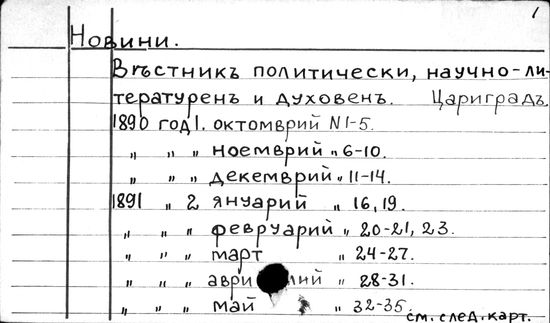 1
Новини.
Вѣстникъ политически, научно-ли-
тературенъ и духовенъ. Цариградъ.
1890 год 1. октомврий N 1-5.
„ „ „ ноемврий „ 6-10.
„ „ „ декемврий „ 11-14.
1891 „ 2 януарий „ 16, 19.
„ „ „ февруарий „ 20-21, 23.
„ „ „ март „ 24-27.
„ „ „ „ 28-31.
„ „ „ май „ 32-35.
см. след. карт.